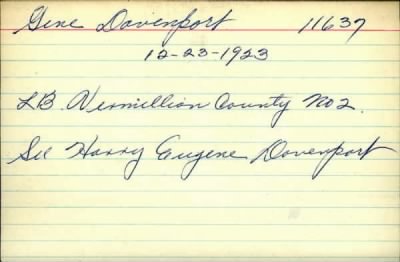 Gene Davenport 11637
12-23-1923
LB. Vermillion County No 2.
See Harry Eugene Davenport